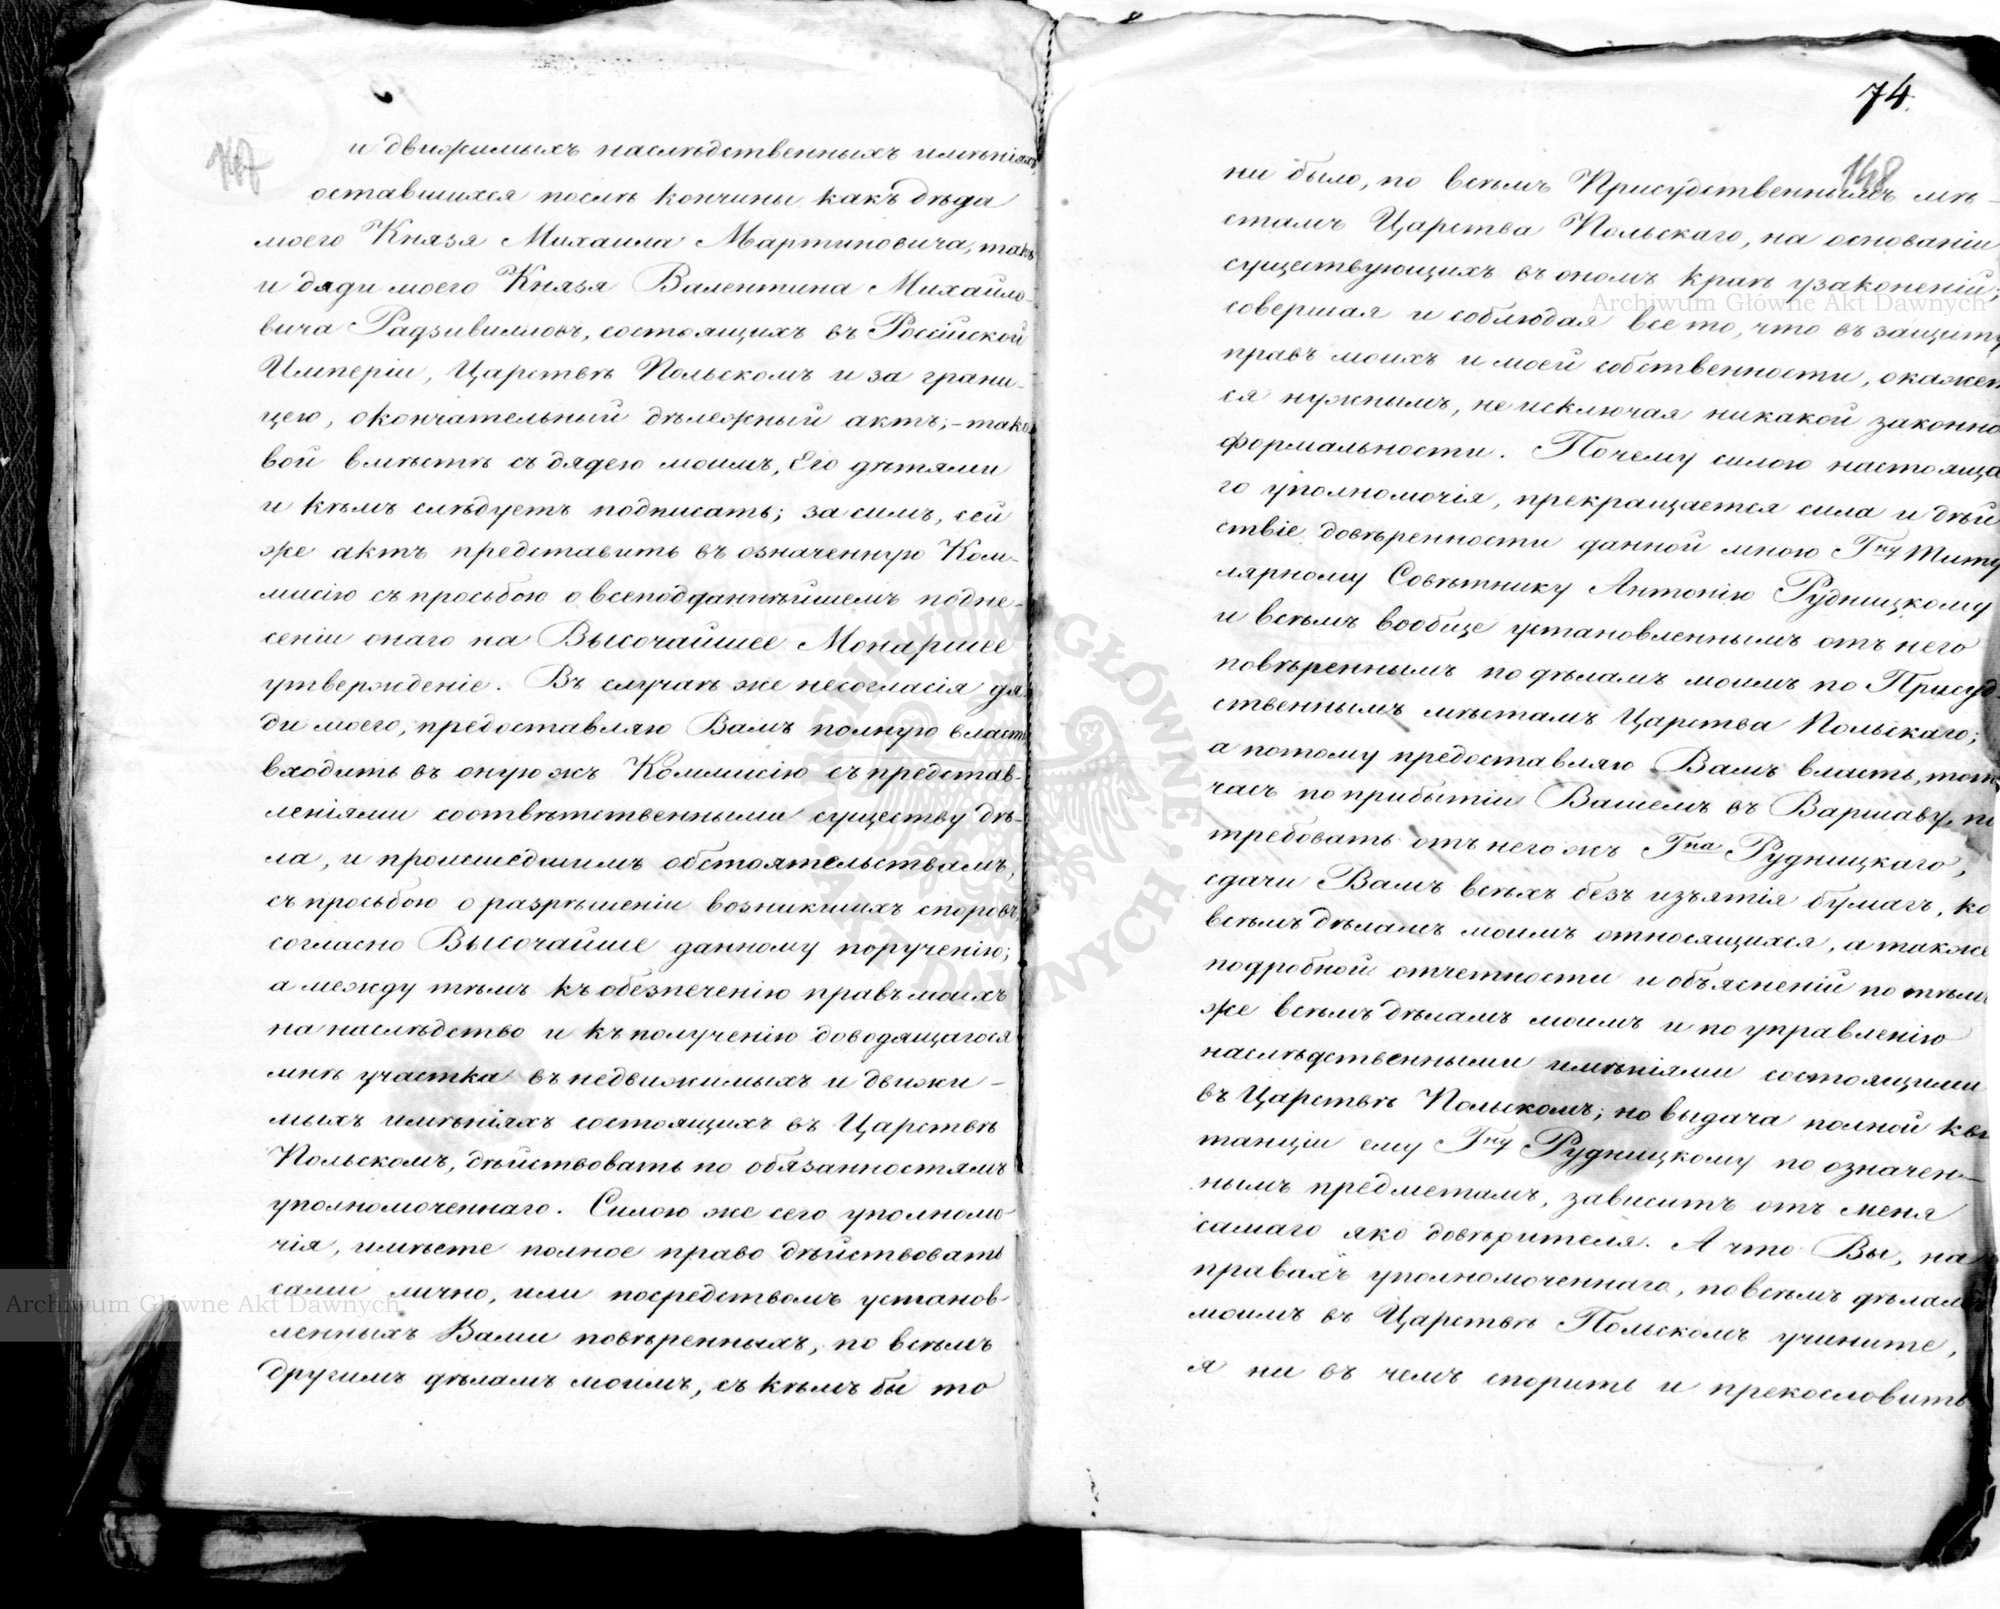 147
и движимыхъ наслѣдственныхъ имѣніяхъ
оставшихся послѣ кончины какъ дѣда
моего Князя Михаила Мартиновича, такъ
и дяди моего Князя Валентина Михайло-
вича Радзивилловъ, состоящихъ въ Россійской
Имперіи, Царствѣ Польскомъ и за грани-
цею, окончательный дѣлежный актъ;-тако
вой вмѣстѣ съ дядею моимъ, Его дѣтями
и кѣмъ слѣдуетъ подписать; за симъ, сей
же актъ представить въ означенную Ком-
мисію съ просьбою о всеподданнѣйшемъ подне-
сеніи онаго на Высочайшее Монаршее
утвержденіе. Въ случаѣ же несогласія дя
ди моего, предоставляю Вамъ полную власть
входить въ оную жъ Коммисію съ представ-
леніями соотвѣтственными существу дѣ-
ла, и происшедшимъ обстоятельствамъ,
съ просьбою о разрѣшеніи возникшихъ споровъ,
согласно Высочайше данному порученію;
а между тѣмъ къ обезпеченію правъ моихъ
на наслѣдство и къ полученію доводящагося
мнѣ участка въ недвижимыхъ и движи-
мыхъ имѣніяхъ состоящихъ въ Царствѣ
Польскомъ, дѣйствовать по обязанностямъ
уполномоченнаго. Силою же сего уполномо-
чія, имѣете полное право дѣйствовать
сами лично, или посредствомъ установ-
ленныхъ Вами повѣренныхъ, по всѣмъ
другимъ дѣламъ моимъ, съ кѣмъ бы то
74.
148
ни было, по всѣмъ Присудственнымъ мѣ-
стамъ Царства Польскаго, на основаніи
существующихъ въ ономъ краѣ узаконеній;
совершая и соблюдая все то, что въ защиту
правъ моихъ и моей собственности, окажет
ся нужнымъ, не исключая никакой законно
формальности. Почему силою настояща
го уполномочія, прекращается сила и дѣй
ствіе довѣренности данной мною Гну Титу
лярному Совѣтнику Антонію Рудницкому
и всѣмъ вообще установленнымъ отъ него
повѣреннымъ по дѣламъ моимъ по Присуд-
ственнымъ мѣстамъ Царства Польскаго;
а потому предоставляю Вамъ власть, тот
часъ по прибытіи Вашемъ въ Варшаву, по
требовать отъ него жъ Гна Рудницкаго,
сдачи Вамъ всѣхъ безъ изъятія бумагъ, ко
всѣмъ дѣламъ моимъ относящихся, а также
подробной отчетности и объясненій по тѣмъ
же всѣмъ дѣламъ моимъ и по управленію
наслѣдственными имѣніями состоящими
въ Царствѣ Польскомъ; но выдача полной кви
танціи ему Гну Рудницкому по означен-
нымъ предметамъ, зависитъ отъ меня
самаго яко довѣрителя. А что Вы, на
правахъ уполномоченнаго, по всѣмъ дѣламъ
моимъ въ Царствѣ Польскомъ учините,
я ни въ чемъ спорить и прекословить
Archiwum Główne Akt Dawnych
Archiwum Główne Akt Dawnych
ARCHIWUM GŁÓWNE AKT DAWNYCH